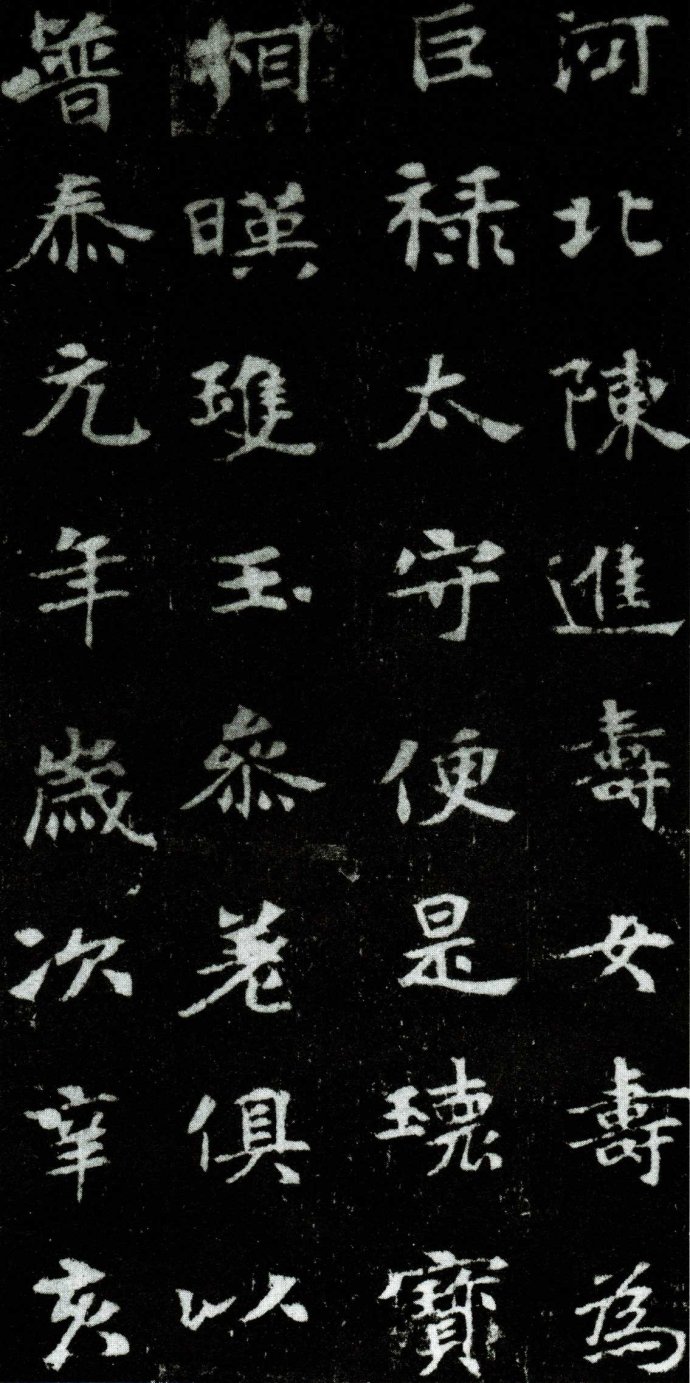 河北陳進壽女壽為
巨祿太守便是瓌寶
相暎瓊玉參差俱以
普泰元年歲次辛亥